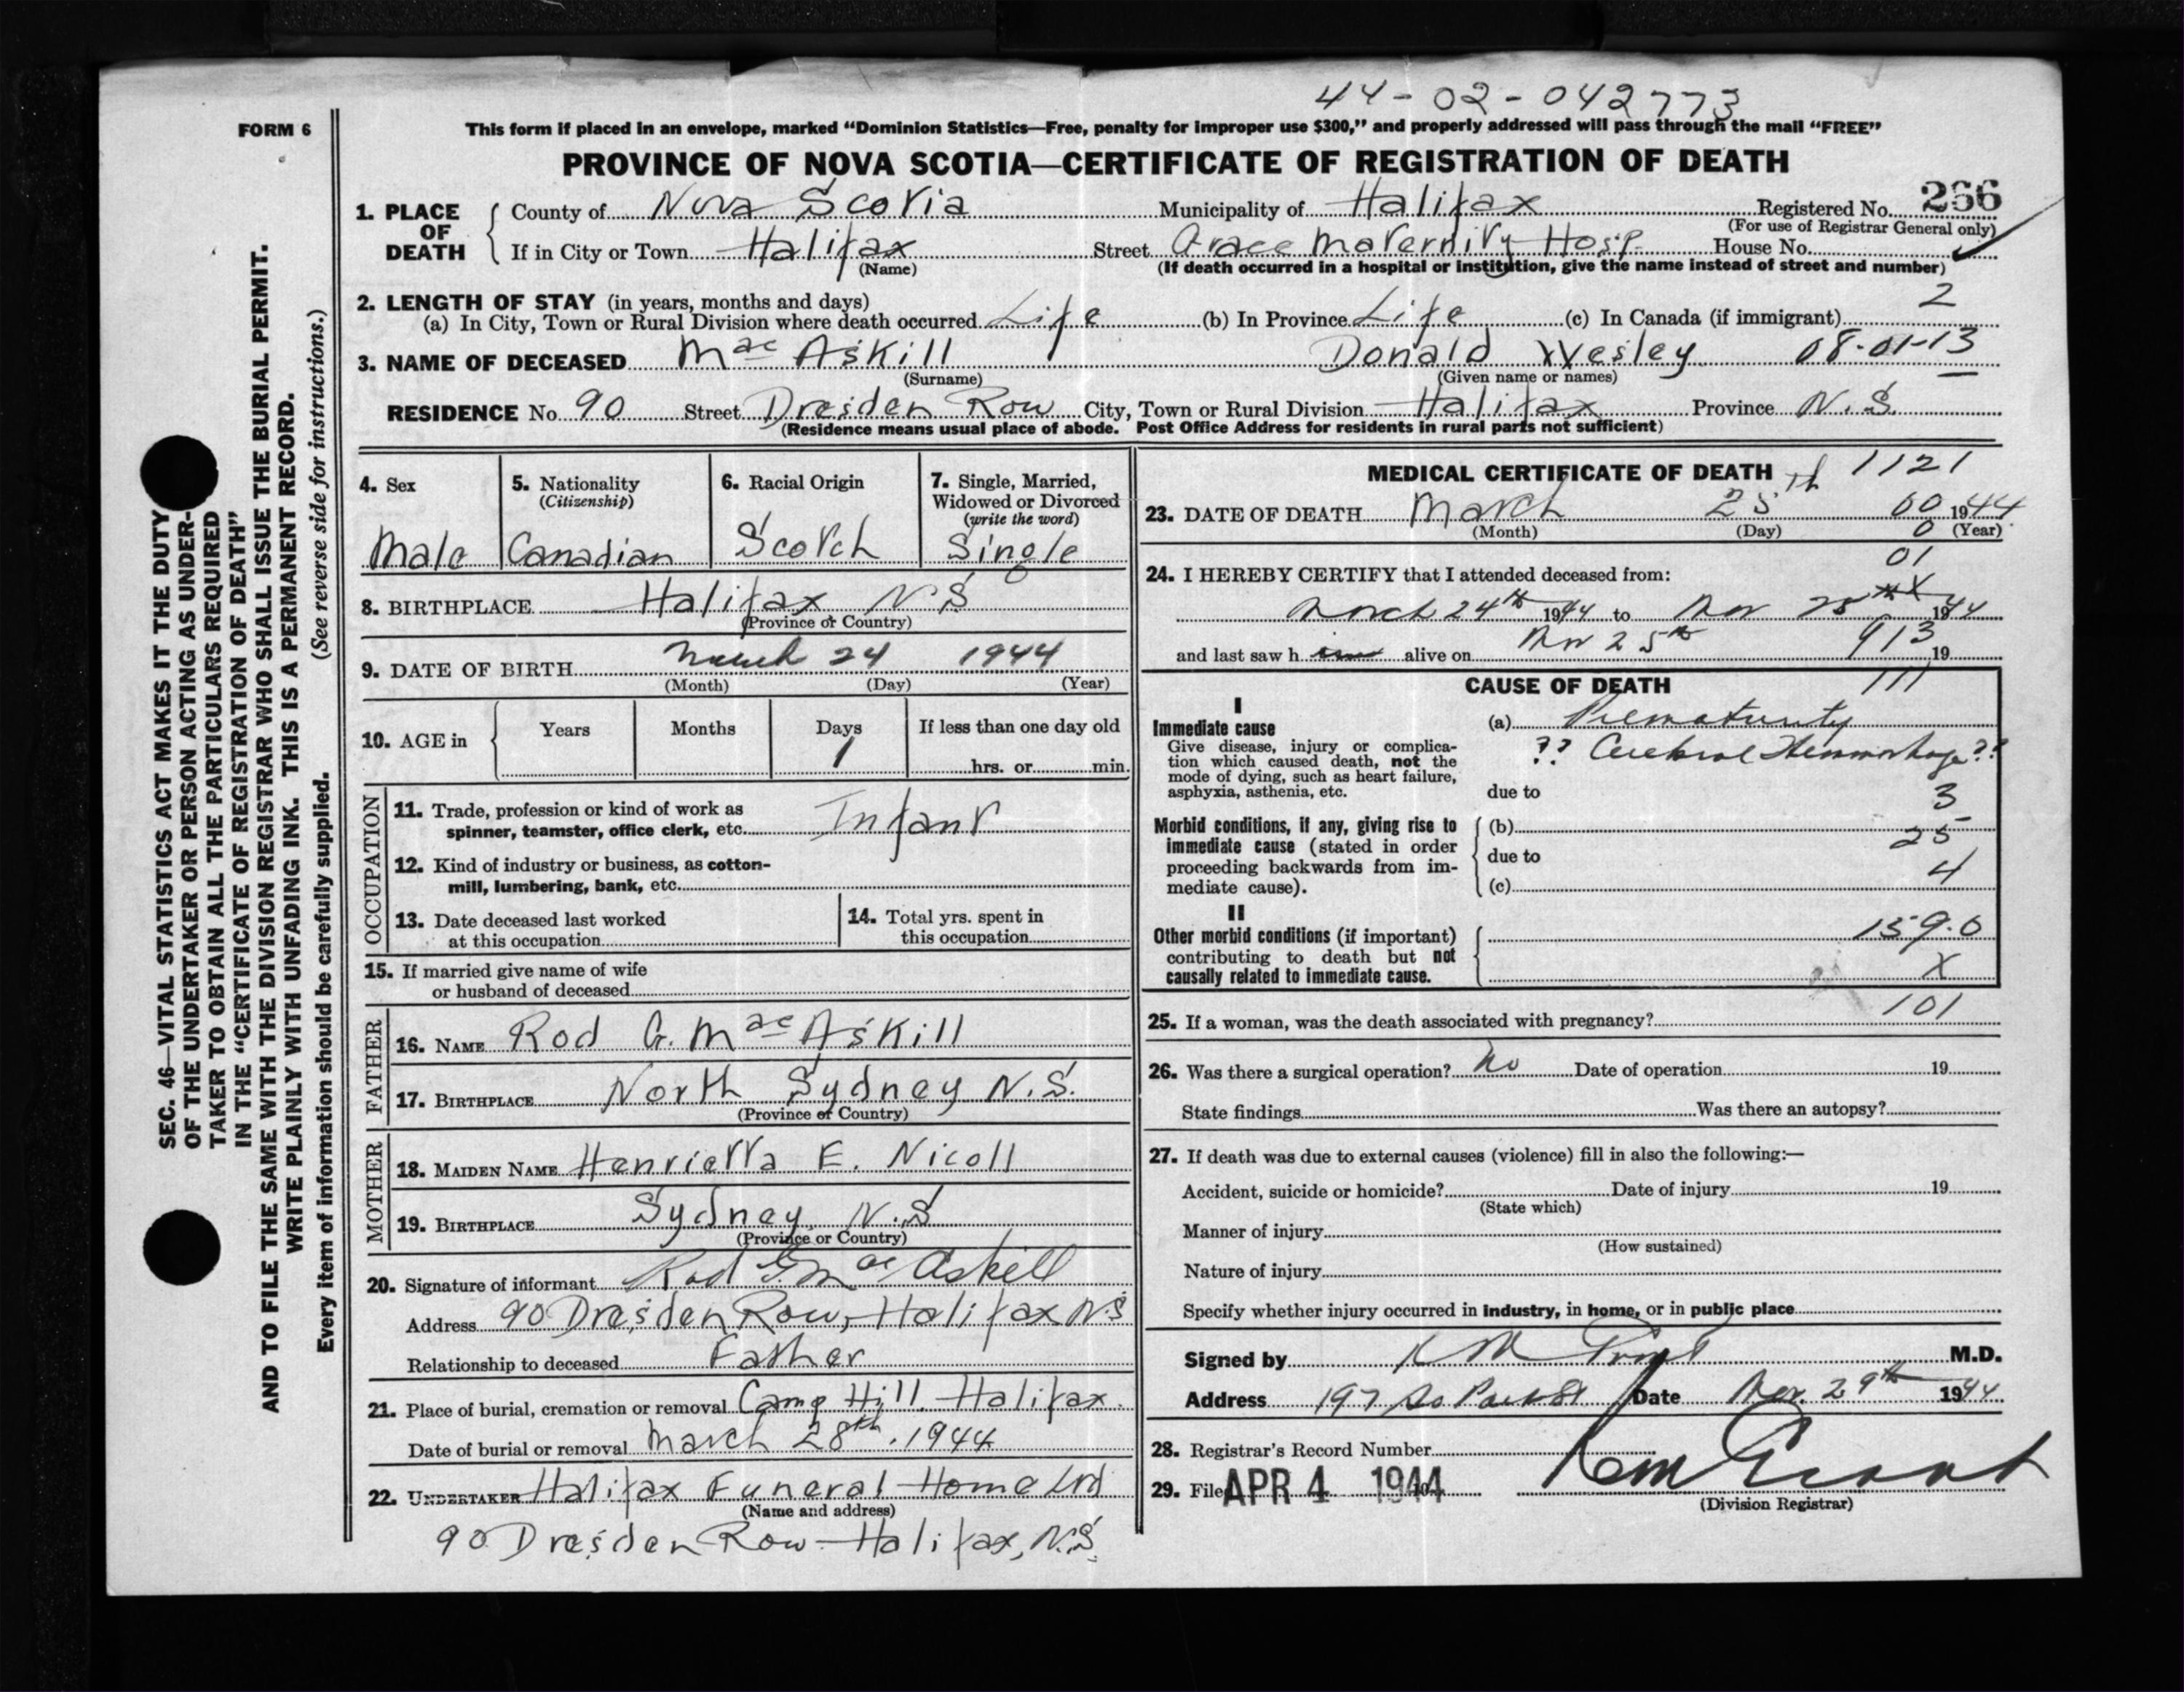 44-02-042773
FORM 6
This form if placed in an envelope, marked "Dominion Statistics—Free, penalty for improper use $300," and properly addressed will pass through the mail "FREE"
PROVINCE OF NOVA SCOTIA—CERTIFICATE OF REGISTRATION OF DEATH
1. PLACE OF DEATH County of Nova Scotia Municipality of Halifax Registered No. 266
(For use of Registrar General only)
If in City or Town Halifax Street Grace Maternity Hosp. House No.
(Name) (If death occurred in a hospital or institution, give the name instead of street and number)
2. LENGTH OF STAY (in years, months and days) 2
(a) In City, Town or Rural Division where death occurred Life (b) In Province Life (c) In Canada (if immigrant)
3. NAME OF DECEASED MacAskill Donald Wesley 08-01-13
(Surname) (Given name or names)
RESIDENCE No. 90 Street Dresden Row City, Town or Rural Division Halifax Province N.S.
(Residence means usual place of abode. Post Office Address for residents in rural parts not sufficient)
4. Sex 5. Nationality (Citizenship) 6. Racial Origin 7. Single, Married, Widowed or Divorced (write the word)
Male Canadian Scotch Single
8. BIRTHPLACE Halifax N S
(Province or Country)
9. DATE OF BIRTH March 24 1944
(Month) (Day) (Year)
10. AGE in Years Months Days If less than one day old
1 hrs. or min.
OCCUPATION
11. Trade, profession or kind of work as
spinner, teamster, office clerk, etc. Infant
12. Kind of industry or business, as cotton-
mill, lumbering, bank, etc.
13. Date deceased last worked
at this occupation
14. Total yrs. spent in
this occupation
15. If married give name of wife
or husband of deceased
FATHER
16. NAME Rod G. MacAskill
17. BIRTHPLACE North Sydney N.S.
(Province or Country)
MOTHER
18. MAIDEN NAME Henrietta E. Nicoll
19. BIRTHPLACE Sydney N.S
(Province or Country)
20. Signature of informant Rod G. MacAskill
Address 90 Dresden Row, Halifax N.S
Relationship to deceased Father
21. Place of burial, cremation or removal Camp Hill. Halifax.
Date of burial or removal March 28th. 1944
22. UNDERTAKER Halifax Funeral Home Ltd
(Name and address)
90 Dresden Row Halifax, N.S.
MEDICAL CERTIFICATE OF DEATH 1121
23. DATE OF DEATH March 25th 00 1944
(Month) (Day) 0 (Year)
01
24. I HEREBY CERTIFY that I attended deceased from:
March 24th 1944 to Mar 25th 1944
and last saw h im alive on Mar 25th 913 19
CAUSE OF DEATH 111
I
Immediate cause
Give disease, injury or complica-
tion which caused death, not the
mode of dying, such as heart failure,
asphyxia, asthenia, etc.
(a) Prematurity
?? Cerebral Hemorrhage??
due to 3
Morbid conditions, if any, giving rise to
immediate cause (stated in order
proceeding backwards from im-
mediate cause).
(b) 25
due to
(c) 4
II
Other morbid conditions (if important)
contributing to death but not
causally related to immediate cause.
159.0
X
25. If a woman, was the death associated with pregnancy? 101
26. Was there a surgical operation? No Date of operation 19
State findings Was there an autopsy?
27. If death was due to external causes (violence) fill in also the following:—
Accident, suicide or homicide? Date of injury 19
(State which)
Manner of injury
(How sustained)
Nature of injury
Specify whether injury occurred in industry, in home, or in public place
Signed by M.D.
Address 197 So Park St Date Mar. 29th 1944
28. Registrar's Record Number
29. File APR 4 1944
(Division Registrar)
SEC. 46—VITAL STATISTICS ACT MAKES IT THE DUTY
OF THE UNDERTAKER OR PERSON ACTING AS UNDER-
TAKER TO OBTAIN ALL THE PARTICULARS REQUIRED
IN THE "CERTIFICATE OF REGISTRATION OF DEATH"
AND TO FILE THE SAME WITH THE DIVISION REGISTRAR WHO SHALL ISSUE THE BURIAL PERMIT.
WRITE PLAINLY WITH UNFADING INK. THIS IS A PERMANENT RECORD.
Every item of information should be carefully supplied. (See reverse side for instructions.)